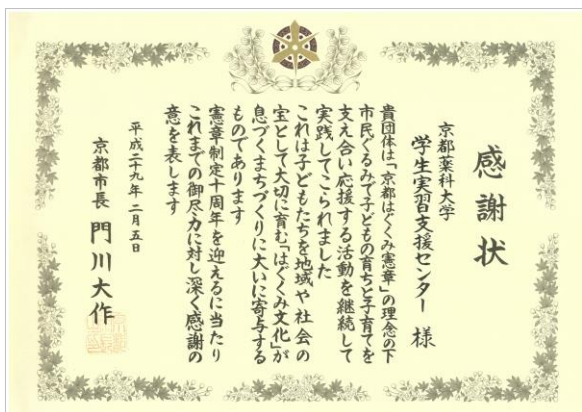 感謝状
京都薬科大学
学生実習支援センター 様
貴団体は「京都はぐくみ憲章」の理念の下
市民ぐるみで子どもの育ちと子育てを
支え合い応援する活動を継続して
実践してこられました
これは子どもたちを地域や社会の
宝として大切に育む「はぐくみ文化」が
息づくまちづくりに大いに寄与する
ものであります
憲章制定十周年を迎えるに当たり
これまでの御尽力に対し深く感謝の
意を表します
平成二十九年 二月五日
京都市長 門川大作